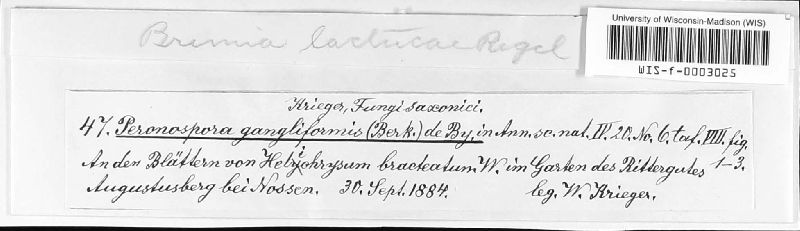 University of Wisconsin-Madison (WIS)
WIS-f-0003025
Bremia lactucae Regel
Krieger, Fungi saxonici.
47. Peronospora gangliformis (Berk.) de By, in Ann. sc. nat. IV. 20. No. 6. taf. VIII. fig. 1-3.
An den Blättern von Helichrysum bracteatum W. im Garten des Rittergutes
Augustusberg bei Nossen. 30. Sept. 1884. leg. W. Krieger.